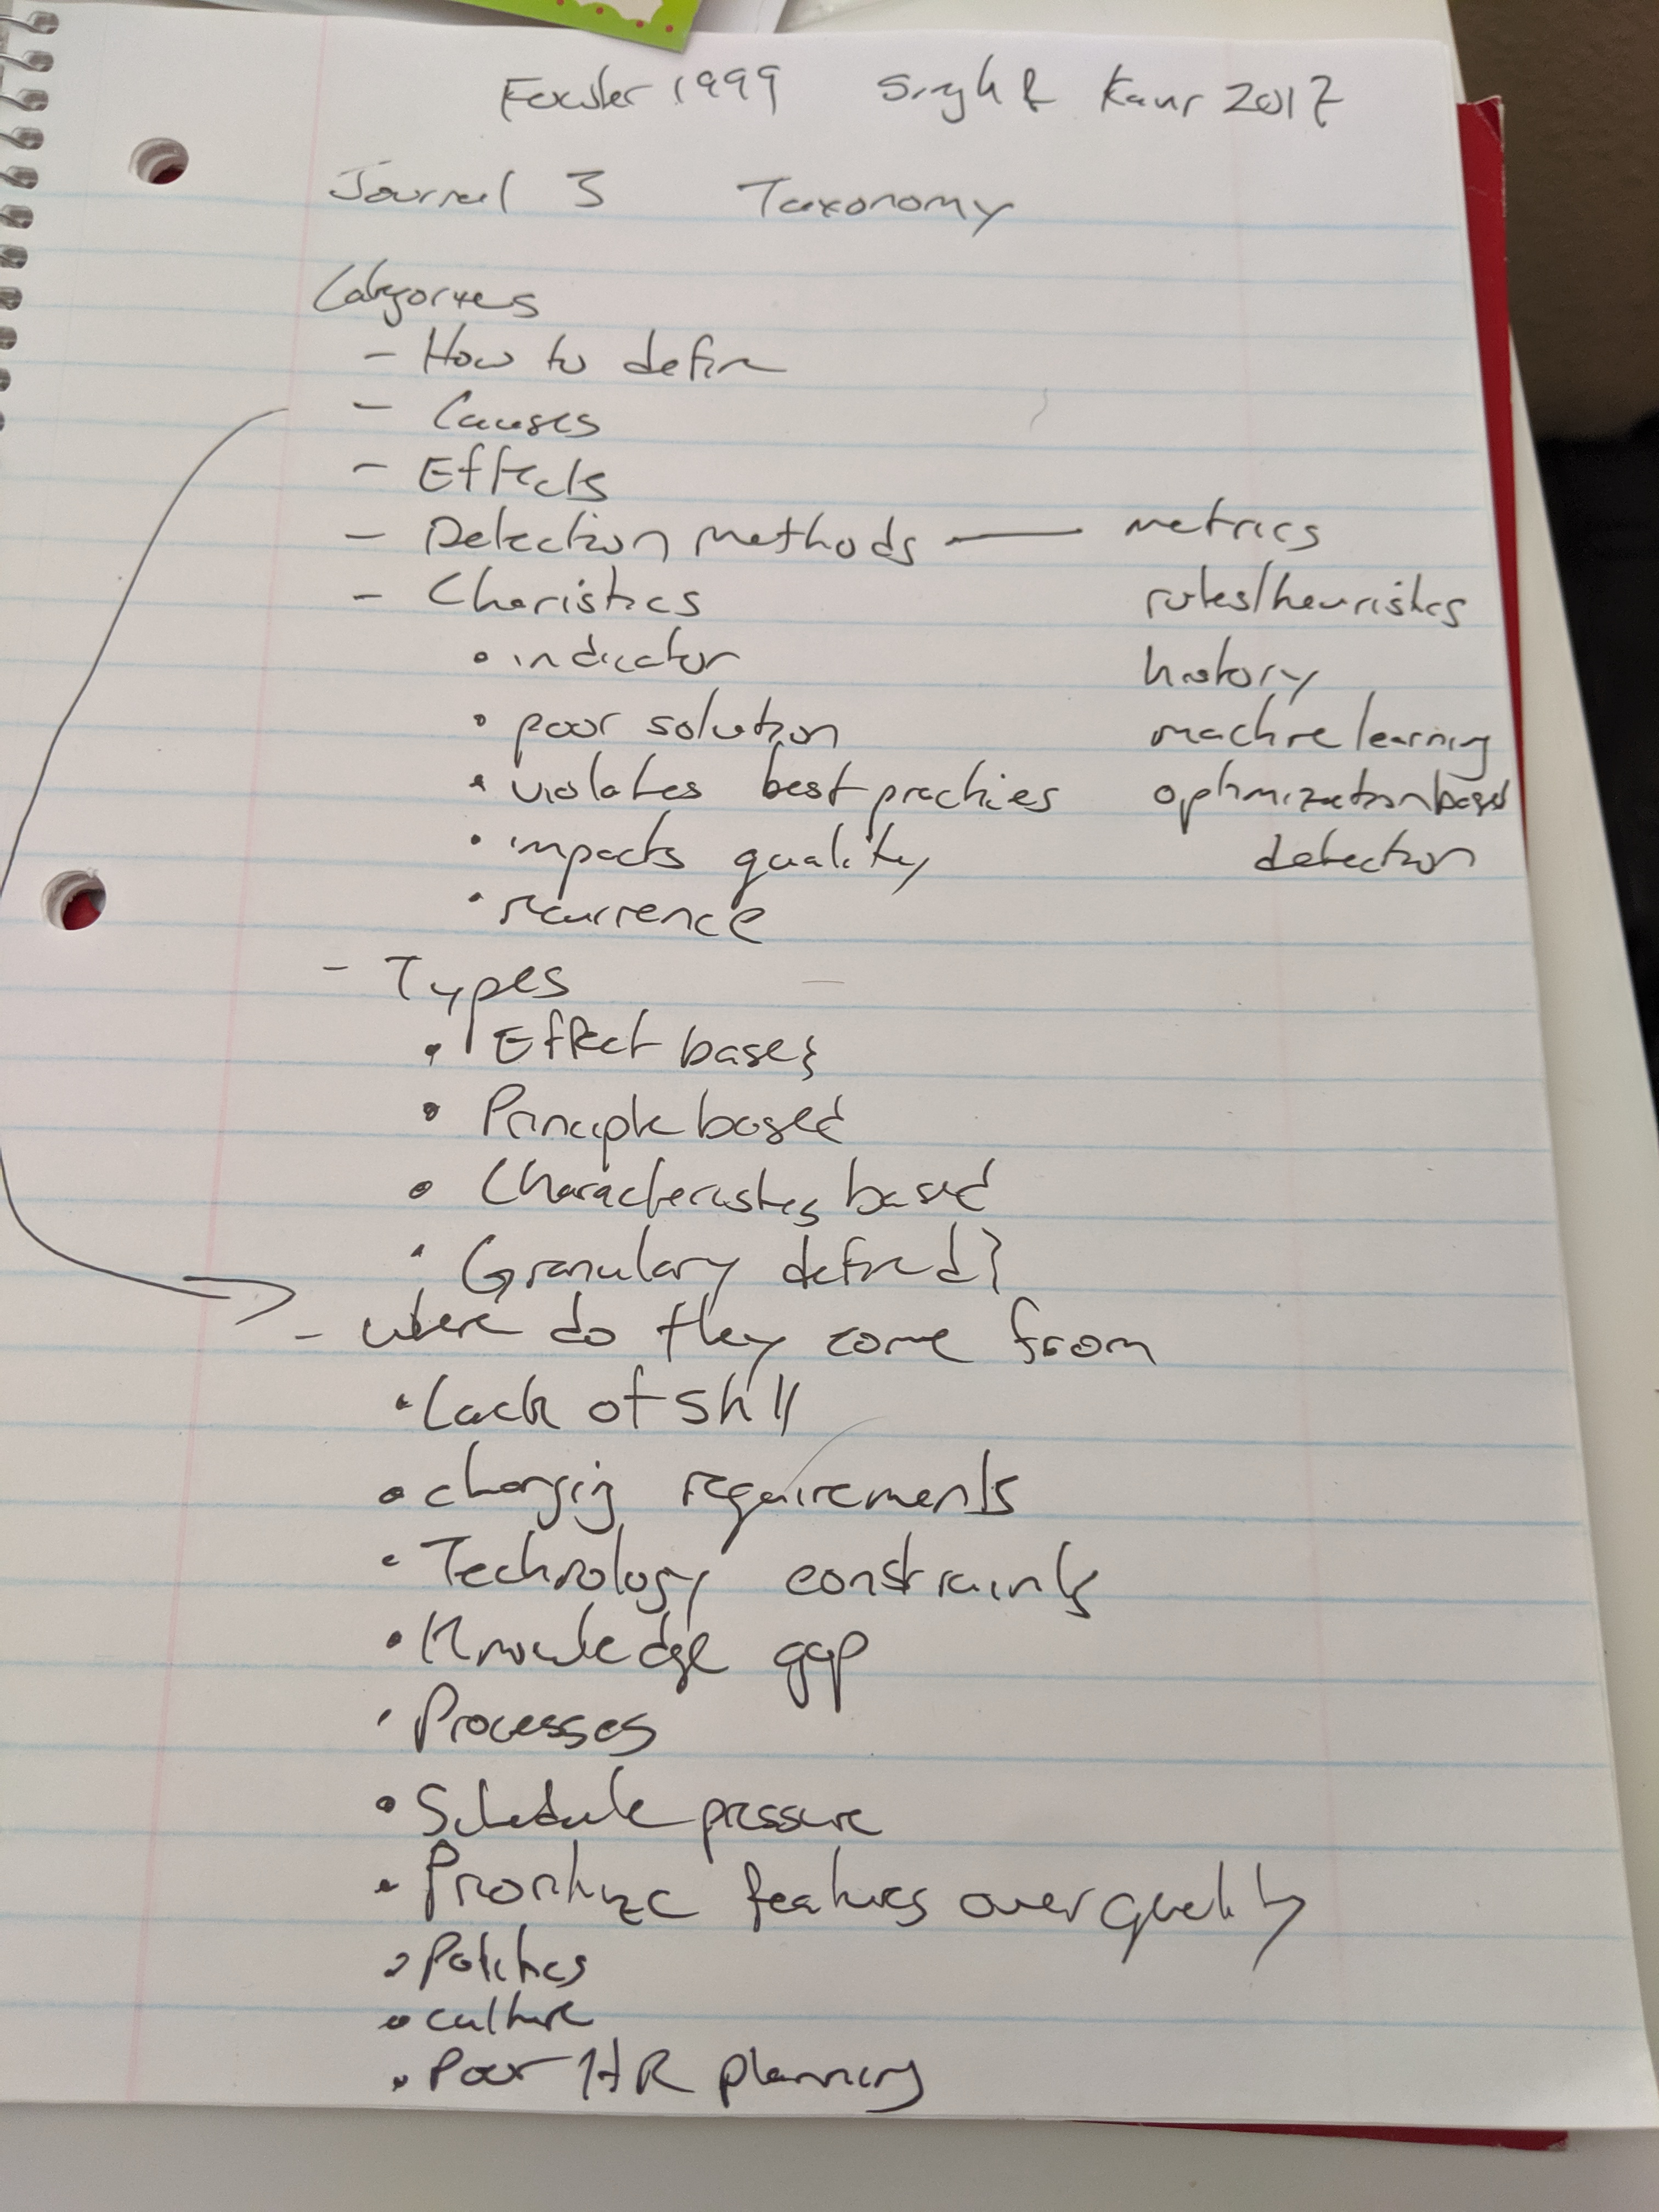 Fowler 1999 Singh & Kaur 2017
Journal 3 Taxonomy
Categories
- How to define
- Causes
- Effects
- Detection methods — metrics
rules/heuristics
history
machine learning
optimization based
detection
- Charistics
• indicator
• poor solution
• violates best practices
• impacts quality
• recurrence
- Types
• Effect based
• Principle based
• Characteristics based
• Granulary defined}
- where do they come from
• Lack of skill
• changing requirements
• Technology constraints
• Knowledge gap
• Processes
• Schedule pressure
• Prioritize features over quality
• Politics
• culture
• Poor HR planning